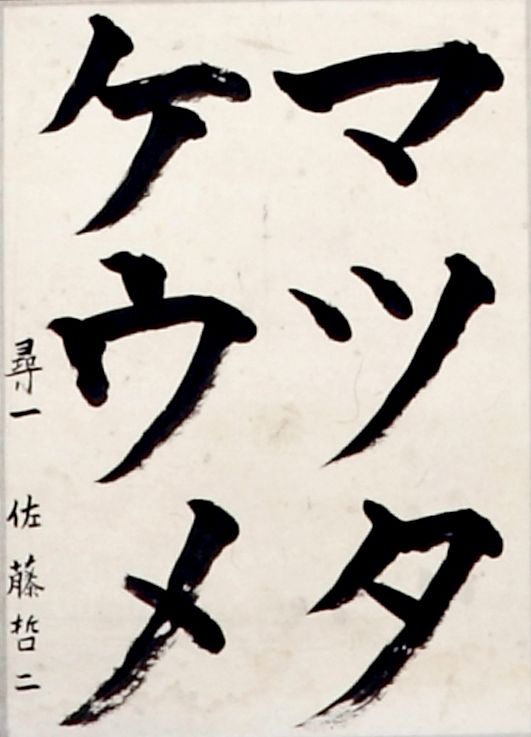 マツタ
ケウメ
尋一 佐藤哲二